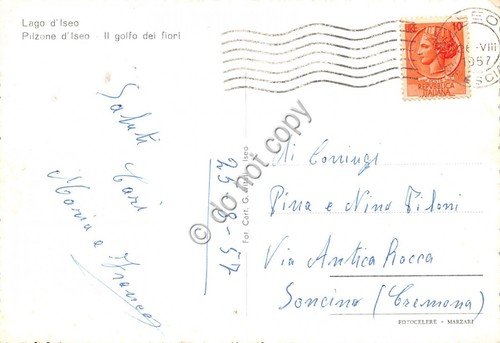 Lago d'Iseo
Pilzone d'Iseo - Il golfo dei fiori
Saluti
Cari
Maria e Franco
25-8-57
Fot. Cart. G. Iseo
do not copy
10
REPUBBLICA
ITALIANA
-VIII
1957
Ai Coniugi
Pina e Nino
Via Antica Rocca
Soncino (Cremona)
FOTOCELERE - MARZARI